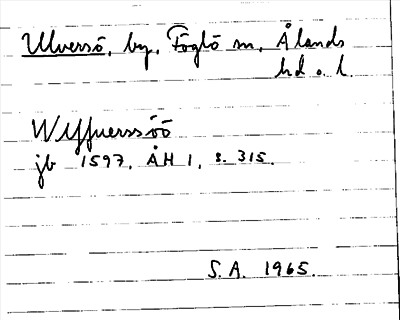 Ulversö, by, Föglö sn, Ålands
hd o. l.
Wlffuerssöö
jb 1597, ÅH 1, s. 315.
S.A. 1965.